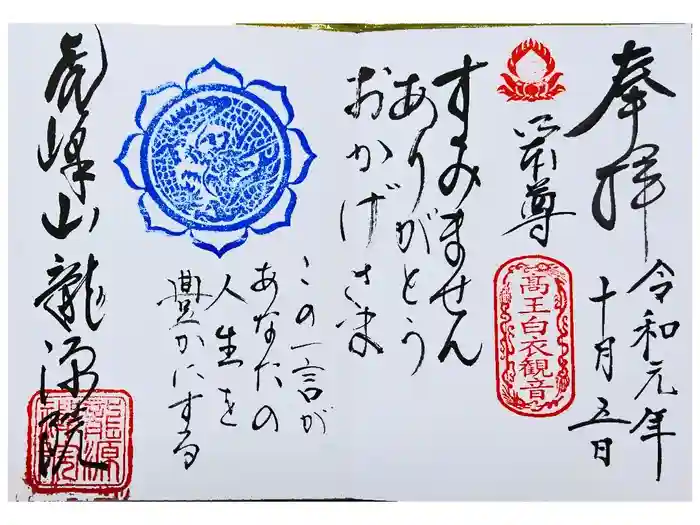 奉拝
令和元年
十月五日
御本尊
高王白衣観音
すみません
ありがとう
おかげさま
この一言が
あなたの
人生を
豊かにする
虎峰山 龍源院
龍源